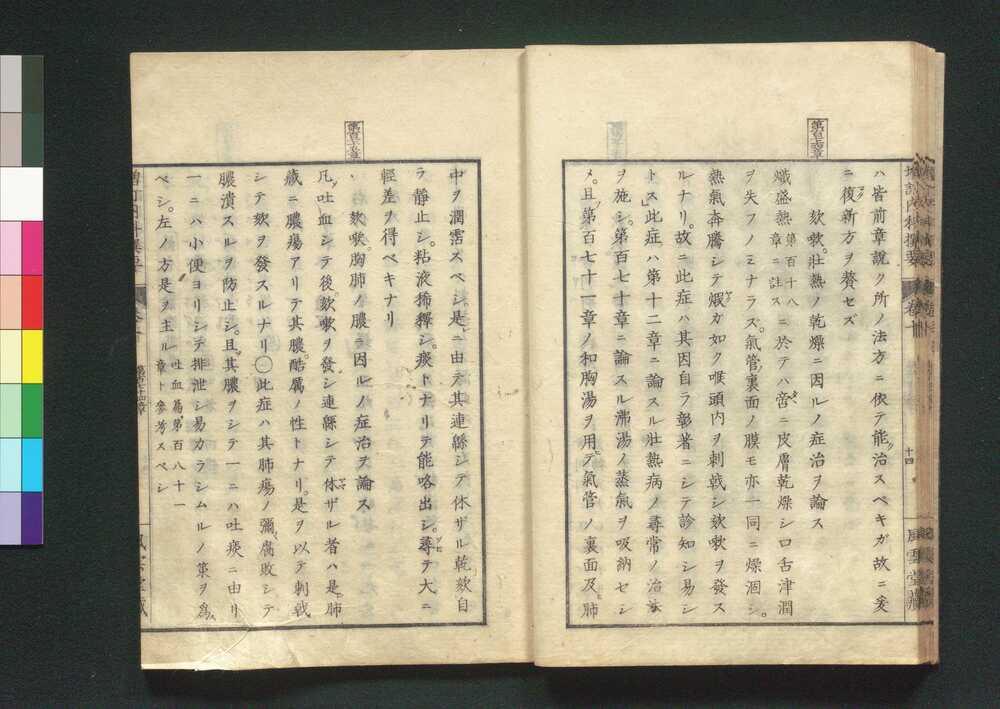 ハ皆前章說ク所ノ法方ニ依テ能ク治スベキガ故ニ爰
ニ復タ新方ヲ贅セズ
第百七十三章
欬軟。壯熱ノ乾燥ニ因ルノ症治ヲ論ス
熾盛熱第百十八章ニ註スニ於テハ啻ニ皮膚乾燥シ口舌津潤
ヲ失フノミナラズ。氣管裏面ノ膜モ亦一同ニ燥涸シ。
熱氣奔騰シテ煆カ如ク喉頭内ヲ刺戟シ欬嗽ヲ發ス
ルナリ。故ニ此症ハ其因自ラ彰著ニシテ診知シ易シ
トス」此症ハ第十二章ニ論スル壯熱病ノ尋常ノ治法
ヲ施シ。第百七十章ニ論スル沸湯ノ蒸氣ヲ吸納セシ
メ。且ツ第百七十一章ノ和胸湯ヲ用ヒテ氣管ノ裏面及ヒ肺
増訂内科撰要 卷十
十四
風雲堂藏
中ヲ潤霑スベシ。是ニ由テ其連緜シテ休ザル乾欬自
ラ靜止シ。粘液稀釋シ。痰トナリテ能咯出シ。尋テ大ニ
輕差ヲ得ベキナリ
欬嗽。胸肺ノ膿ニ因ルノ症治ヲ論ス
凡ソ吐血シテ後。欬嗽ヲ發シ連緜シテ休ザル者ハ是レ肺
藏ニ膿瘍アリテ其膿酷厲ノ性トナリ。是ヲ以テ刺戟
シテ欬ヲ發スルナリ〇此症ハ其肺瘍ノ彌腐敗シテ
膿潰スルヲ防止シ。且其膿ヲシテ一ニハ吐痰ニ由リ
一ニハ小便ヨリシテ排泄シ易カラシムルノ策ヲ爲ス
ベシ。左ノ方是ヲ主ル吐血篇第百八十一章ト參考スベシ